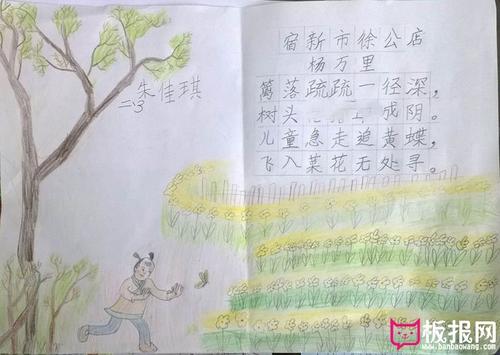 朱佳琪
二、3
宿新市徐公店
杨万里
篱落疏疏一径深，
树头 成阴。
儿童急走追黄蝶，
飞入菜花无处寻。
板报网
www.banbaowang.com